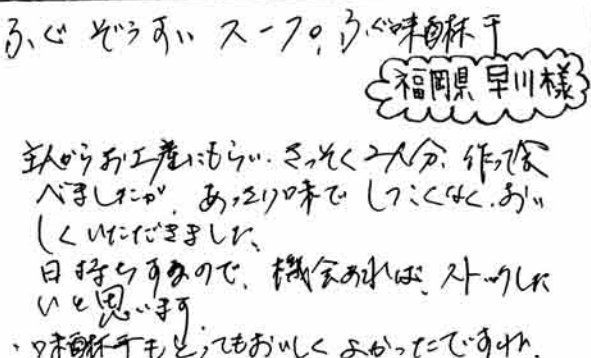 ふぐ ぞうすい スープ。ふぐ味醂干
福岡県 早川様
主人からお土産にもらい、さっそく2人分、作って食
べましたが、あっさり味で しつこくなく、おい
しくいただきました。
日持ちするので、機会あれば、ストックした
いと思います。
・味醂干もとってもおいしく よかったですね。